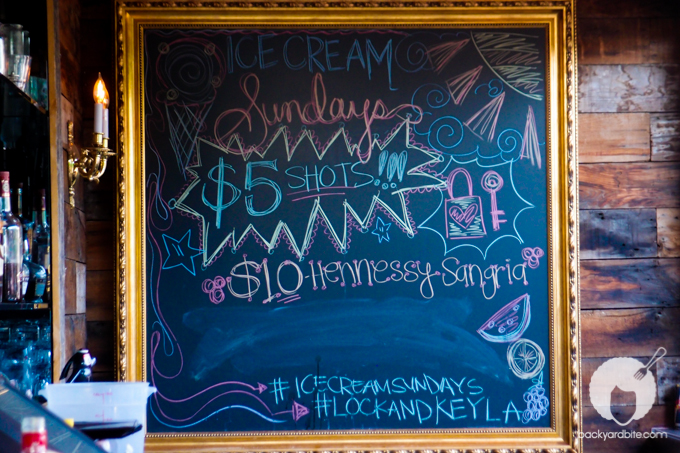 ICE CREAM
Sundays
$5 SHOTS!!!
$10 Hennessy Sangria
#ICECREAMSUNDAYS
#LOCKANDKEYLA
backyardbite.com